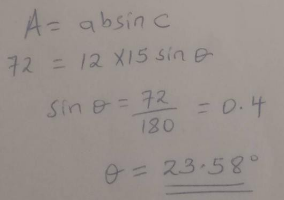 A = absin c
72 = 12 × 15 sin θ
sin θ = 72/180 = 0.4
θ = 23.58°